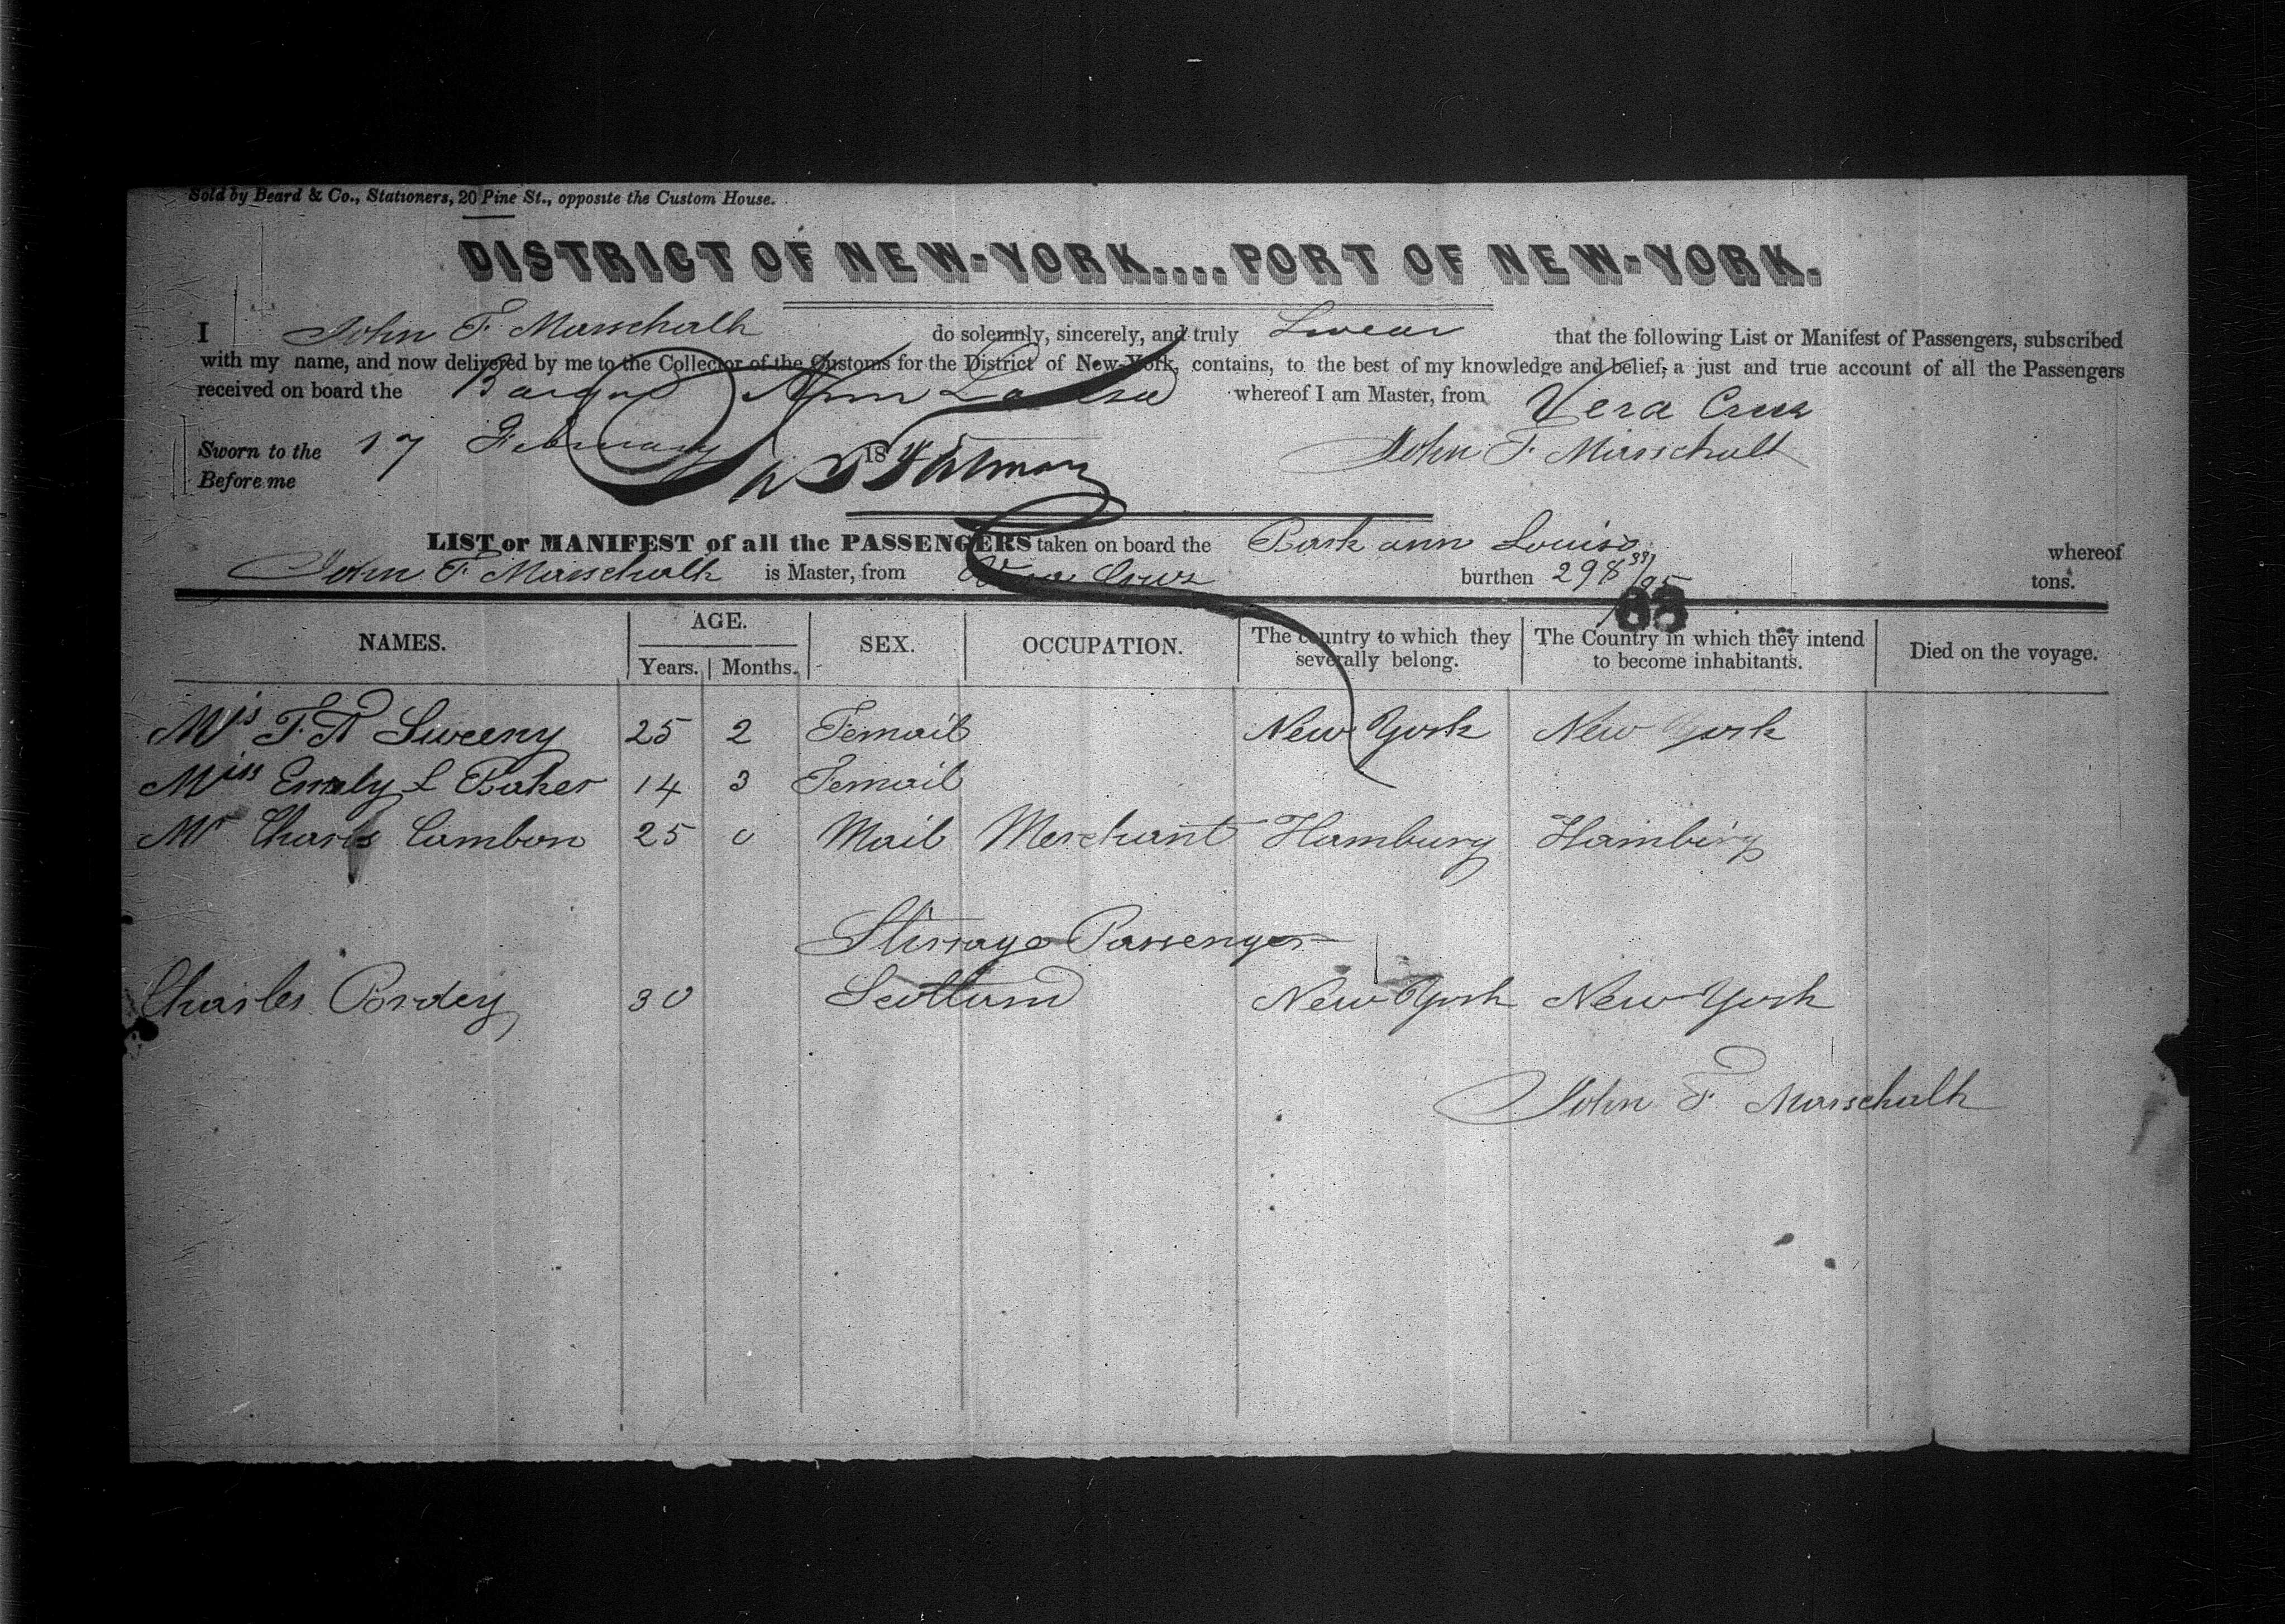 Sold by Beard & Co., Stationers, 20 Pine St., opposite the Custom House.
DISTRICT OF NEW-YORK....PORT OF NEW-YORK.
I John F. Marschalk do solemnly, sincerely, and truly Swear that the following List or Manifest of Passengers, subscribed
with my name, and now delivered by me to the Collector of the Customs for the District of New-York, contains, to the best of my knowledge and belief, a just and true account of all the Passengers
received on board the Barque Ann Louisa whereof I am Master, from Vera Cruz
Sworn to the 17 February 184 John F. Marschalk
Before me
LIST or MANIFEST of all the PASSENGERS taken on board the Bark ann Louisa whereof
John F. Marschalk is Master, from Vera Cruz burthen 298 /95 tons.
88
NAMES. AGE. SEX. OCCUPATION. The country to which they severally belong. The Country in which they intend to become inhabitants. Died on the voyage.
Years. Months.
Mis F. A Sweeny 25 2 Femail New York New York
Miss Emely L Baker 14 3 Femail
Mr Charls Cambon 25 0 Mail Merchant Hamburg Hamburg
Stirrage Passenger
Charles Pordey 30 Scotland New York New York
John F Marschalk